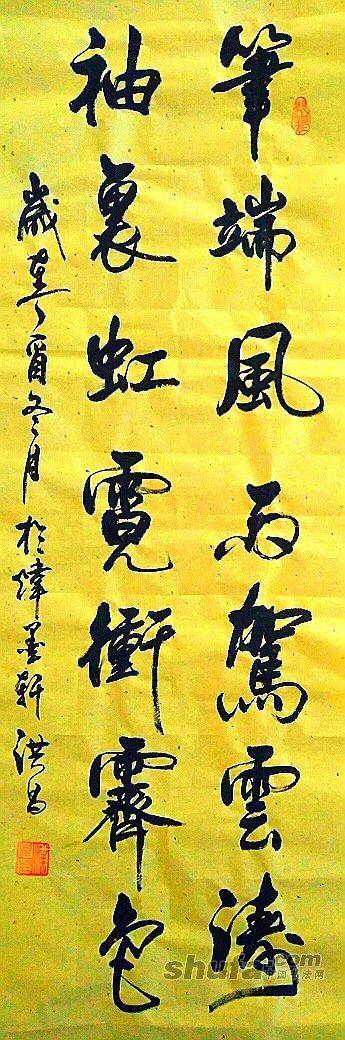 筆端風雨駕雲濤
袖裏虹霓衝霽色
歲在丁酉冬月於煒墨軒洪昌
shufa.com
中国书法网